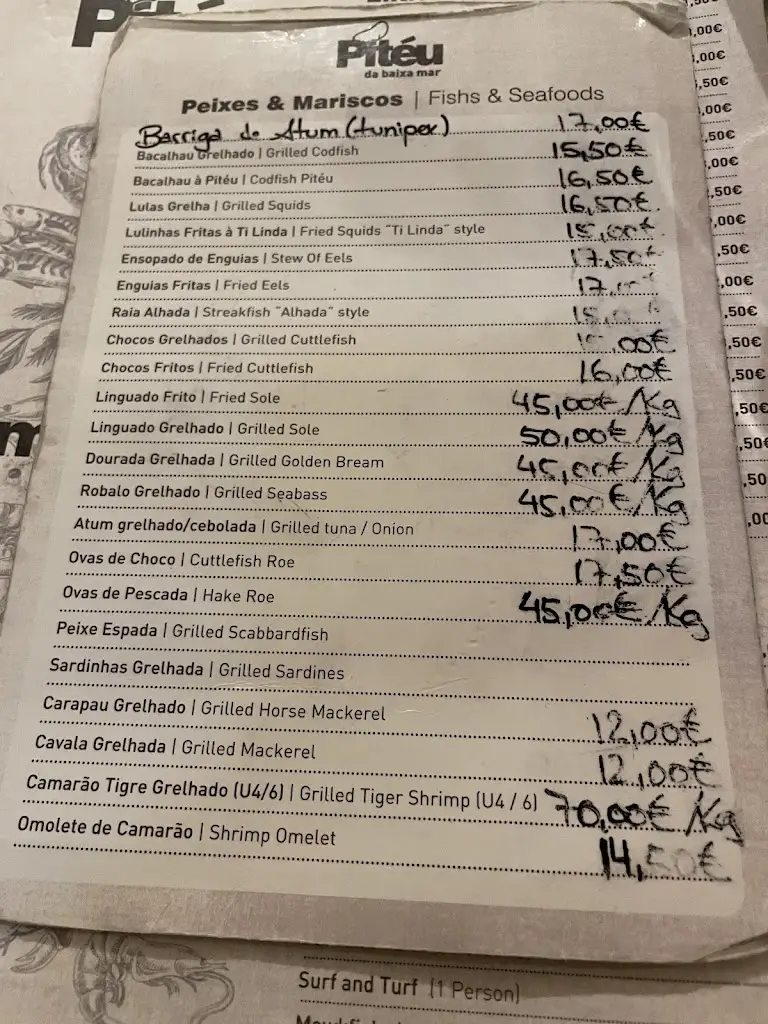 Pitéu
da baixa mar
Peixes & Mariscos | Fishs & Seafoods
Barriga de Atum (tunipex) 17,00€
Bacalhau Grelhado | Grilled Codfish 15,50€
Bacalhau à Pitéu | Codfish Pitéu 16,50€
Lulas Grelha | Grilled Squids 16,50€
Lulinhas Fritas à Ti Linda | Fried Squids "Ti Linda" style
Ensopado de Enguias | Stew Of Eels 17,50€
Enguias Fritas | Fried Eels
Raia Alhada | Streakfish "Alhada" style
Chocos Grelhados | Grilled Cuttlefish
Chocos Fritos | Fried Cuttlefish 16,00€
Linguado Frito | Fried Sole 45,00€/Kg
Linguado Grelhado | Grilled Sole 50,00€/Kg
Dourada Grelhada | Grilled Golden Bream 45,00€/Kg
Robalo Grelhado | Grilled Seabass 45,00€/Kg
Atum grelhado/cebolada | Grilled tuna / Onion 17,00€
Ovas de Choco | Cuttlefish Roe 17,50€
Ovas de Pescada | Hake Roe 45,00€/Kg
Peixe Espada | Grilled Scabbardfish
Sardinhas Grelhada | Grilled Sardines
Carapau Grelhado | Grilled Horse Mackerel 12,00€
Cavala Grelhada | Grilled Mackerel 12,00€
Camarão Tigre Grelhado (U4/6) | Grilled Tiger Shrimp (U4 / 6) 70,00€/Kg
Omolete de Camarão | Shrimp Omelet 14,50€
Surf and Turf (1 Person)